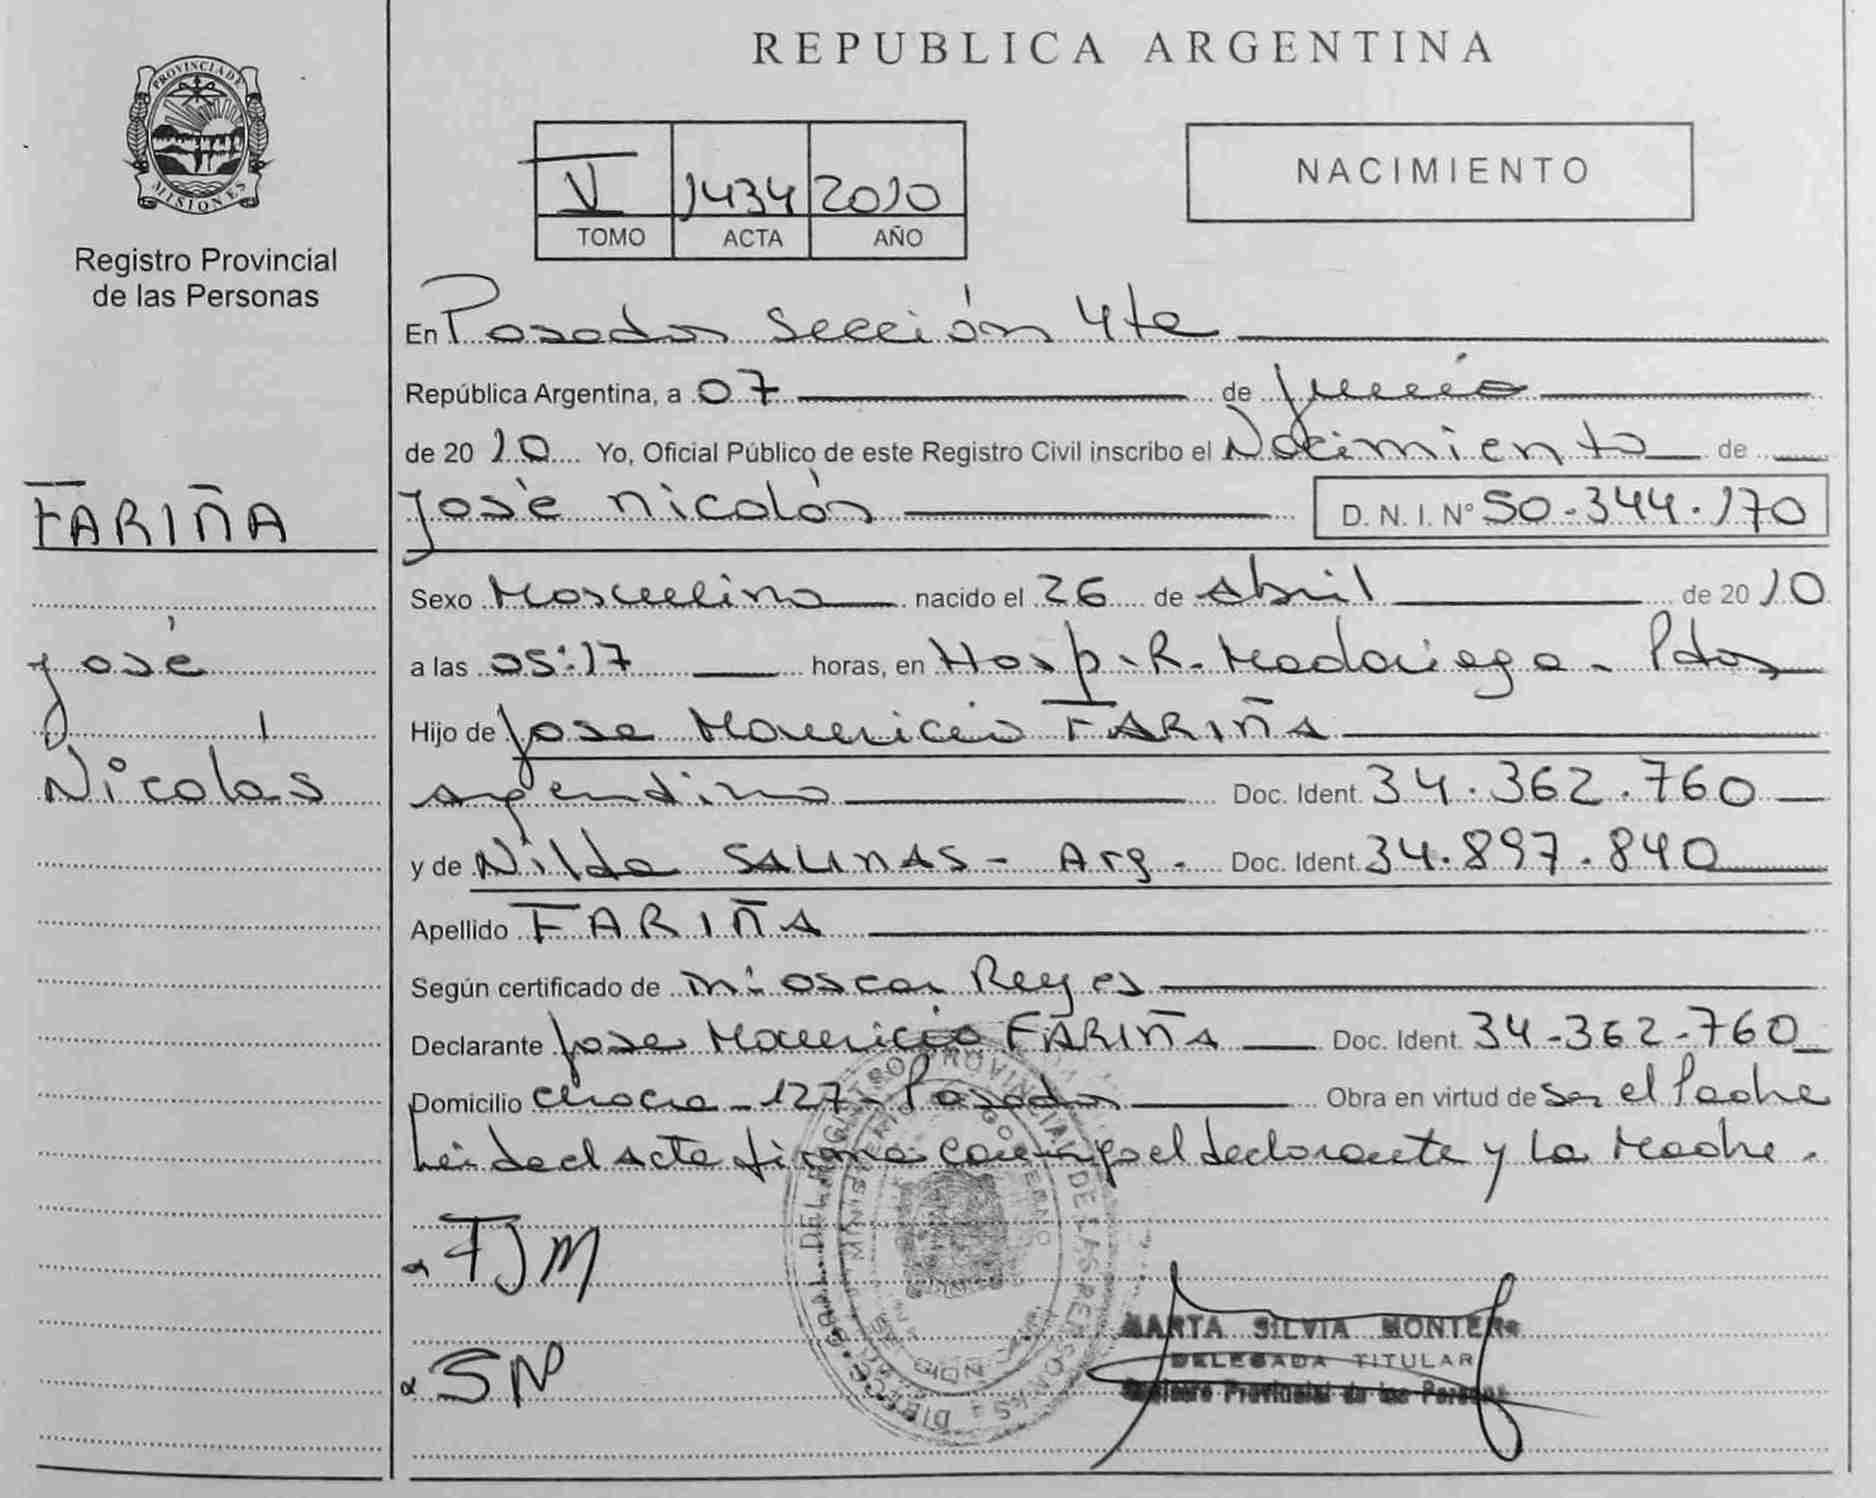 PROVINCIA DE
MISIONES
Registro Provincial
de las Personas
FARIÑA
José
Nicolás
REPUBLICA ARGENTINA
V 1434 2010
TOMO ACTA AÑO
NACIMIENTO
En Posadas Sección 4ta
República Argentina, a 07 de Junio
de 2010 Yo, Oficial Público de este Registro Civil inscribo el Nacimiento de
José Nicolás D. N. I. N° 50.344.170
Sexo Masculino nacido el 26 de Abril de 2010
a las 05:17 horas, en Hosp. R. Madariaga - Pdas
Hijo de Jose Mauricio FARIÑA
argentino Doc. Ident. 34.362.760
y de Nilda SALINAS - Arg. Doc. Ident. 34.897.840
Apellido FARIÑA
Según certificado de Oscar Reyes
Declarante Jose Mauricio FARIÑA Doc. Ident. 34-362-760
Domicilio Chacra 127- Posadas Obra en virtud de ser el Padre
Leida el Acta firma conmigo el declarante y la Madre.
FJM
SN
MARTA SILVIA MONTERO
DELEGADA TITULAR
Registro Provincial de las Personas